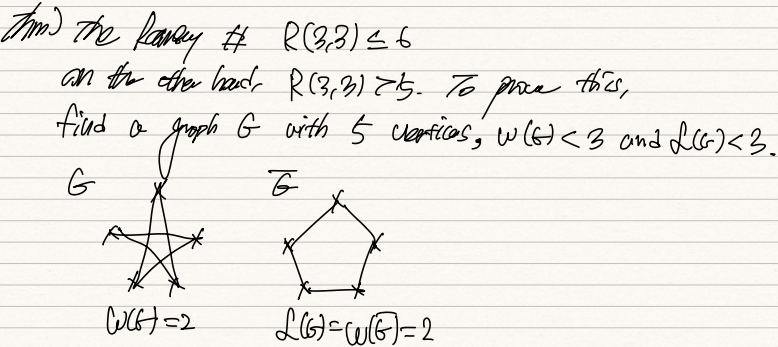 Thm) The Ramsey # R(3,3) ≤ 6
on the other hand, R(3,3) > 5. To prove this,
find a graph G with 5 vertices, ω(G) < 3 and α(G) < 3.
G G̅
ω(G) = 2 α(G) = ω(G̅) = 2